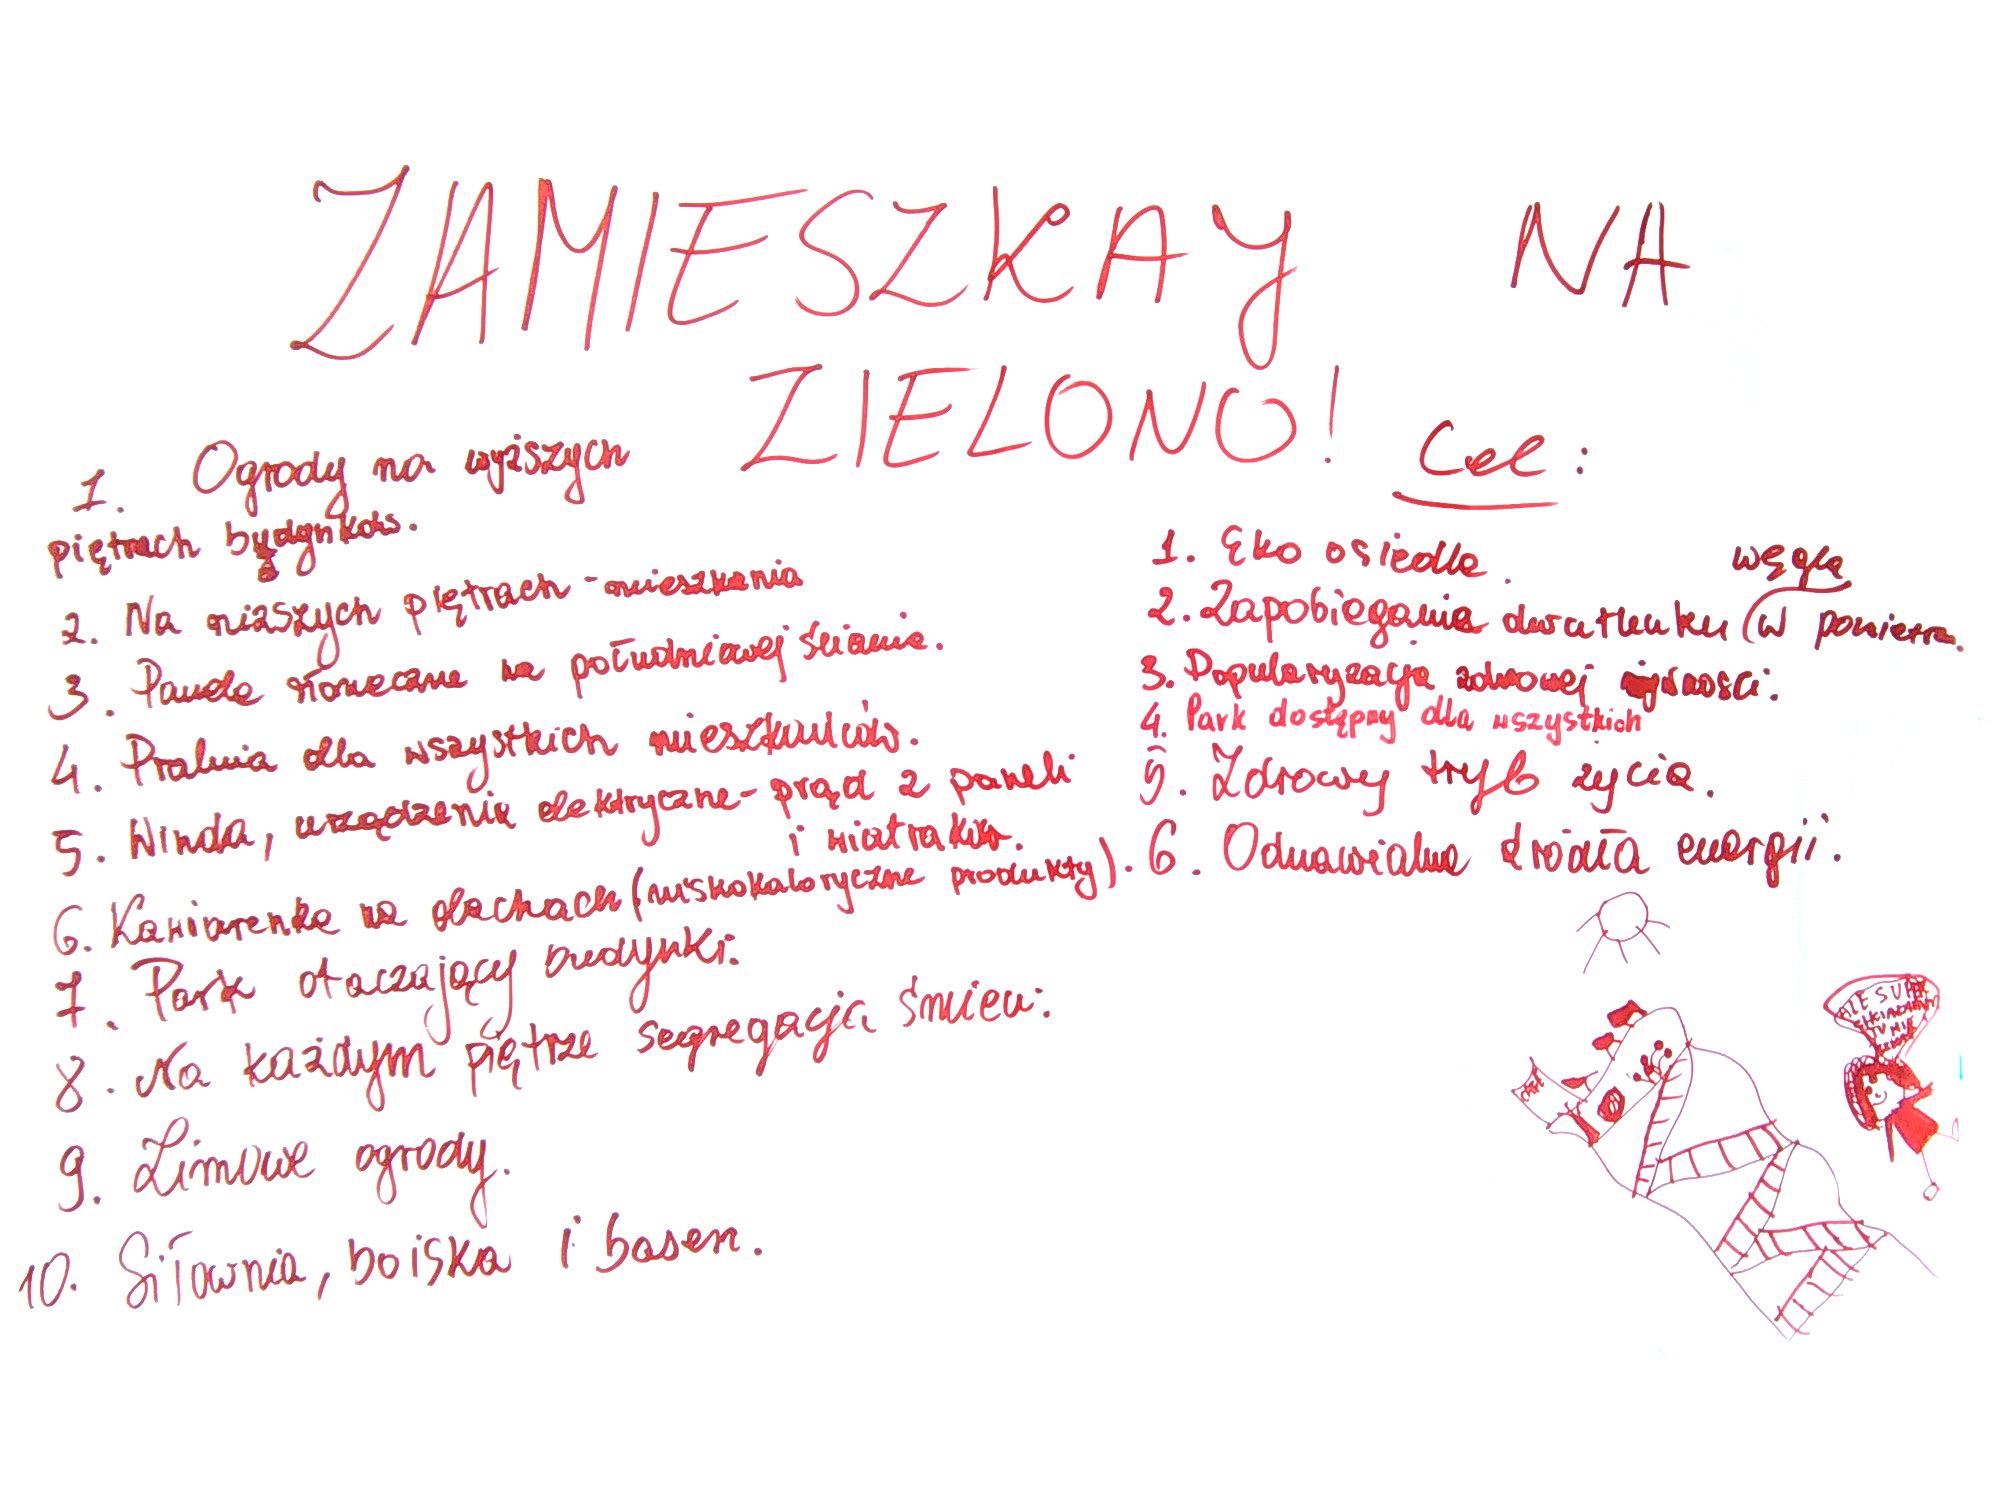 ZAMIESZKAY NA
ZIELONO!
1. Ogrody na wyższych
piętrach budynków.
2. Na niższych piętrach - mieszkania
3. Panele słoneczne na południowej ścianie.
4. Pralnia dla wszystkich mieszkańców.
5. Winda, urządzenia elektryczne - prąd z paneli
i wiatraków.
6. Kawiarenka na dachach (niskokaloryczne produkty).
7. Park otaczający budynki.
8. Na każdym piętrze segregacja śmieci.
9. Zimowe ogrody.
10. Siłownia, boiska i basen.
Cel:
1. Eko osiedle.
węgla
2. Zapobieganie dwutlenku (w powietrzu.
3. Popularyzacja zdrowej żywności.
4. Park dostępny dla wszystkich
5. Zdrowy tryb życia.
6. Odnawialne źródła energii.
ALE SUPER